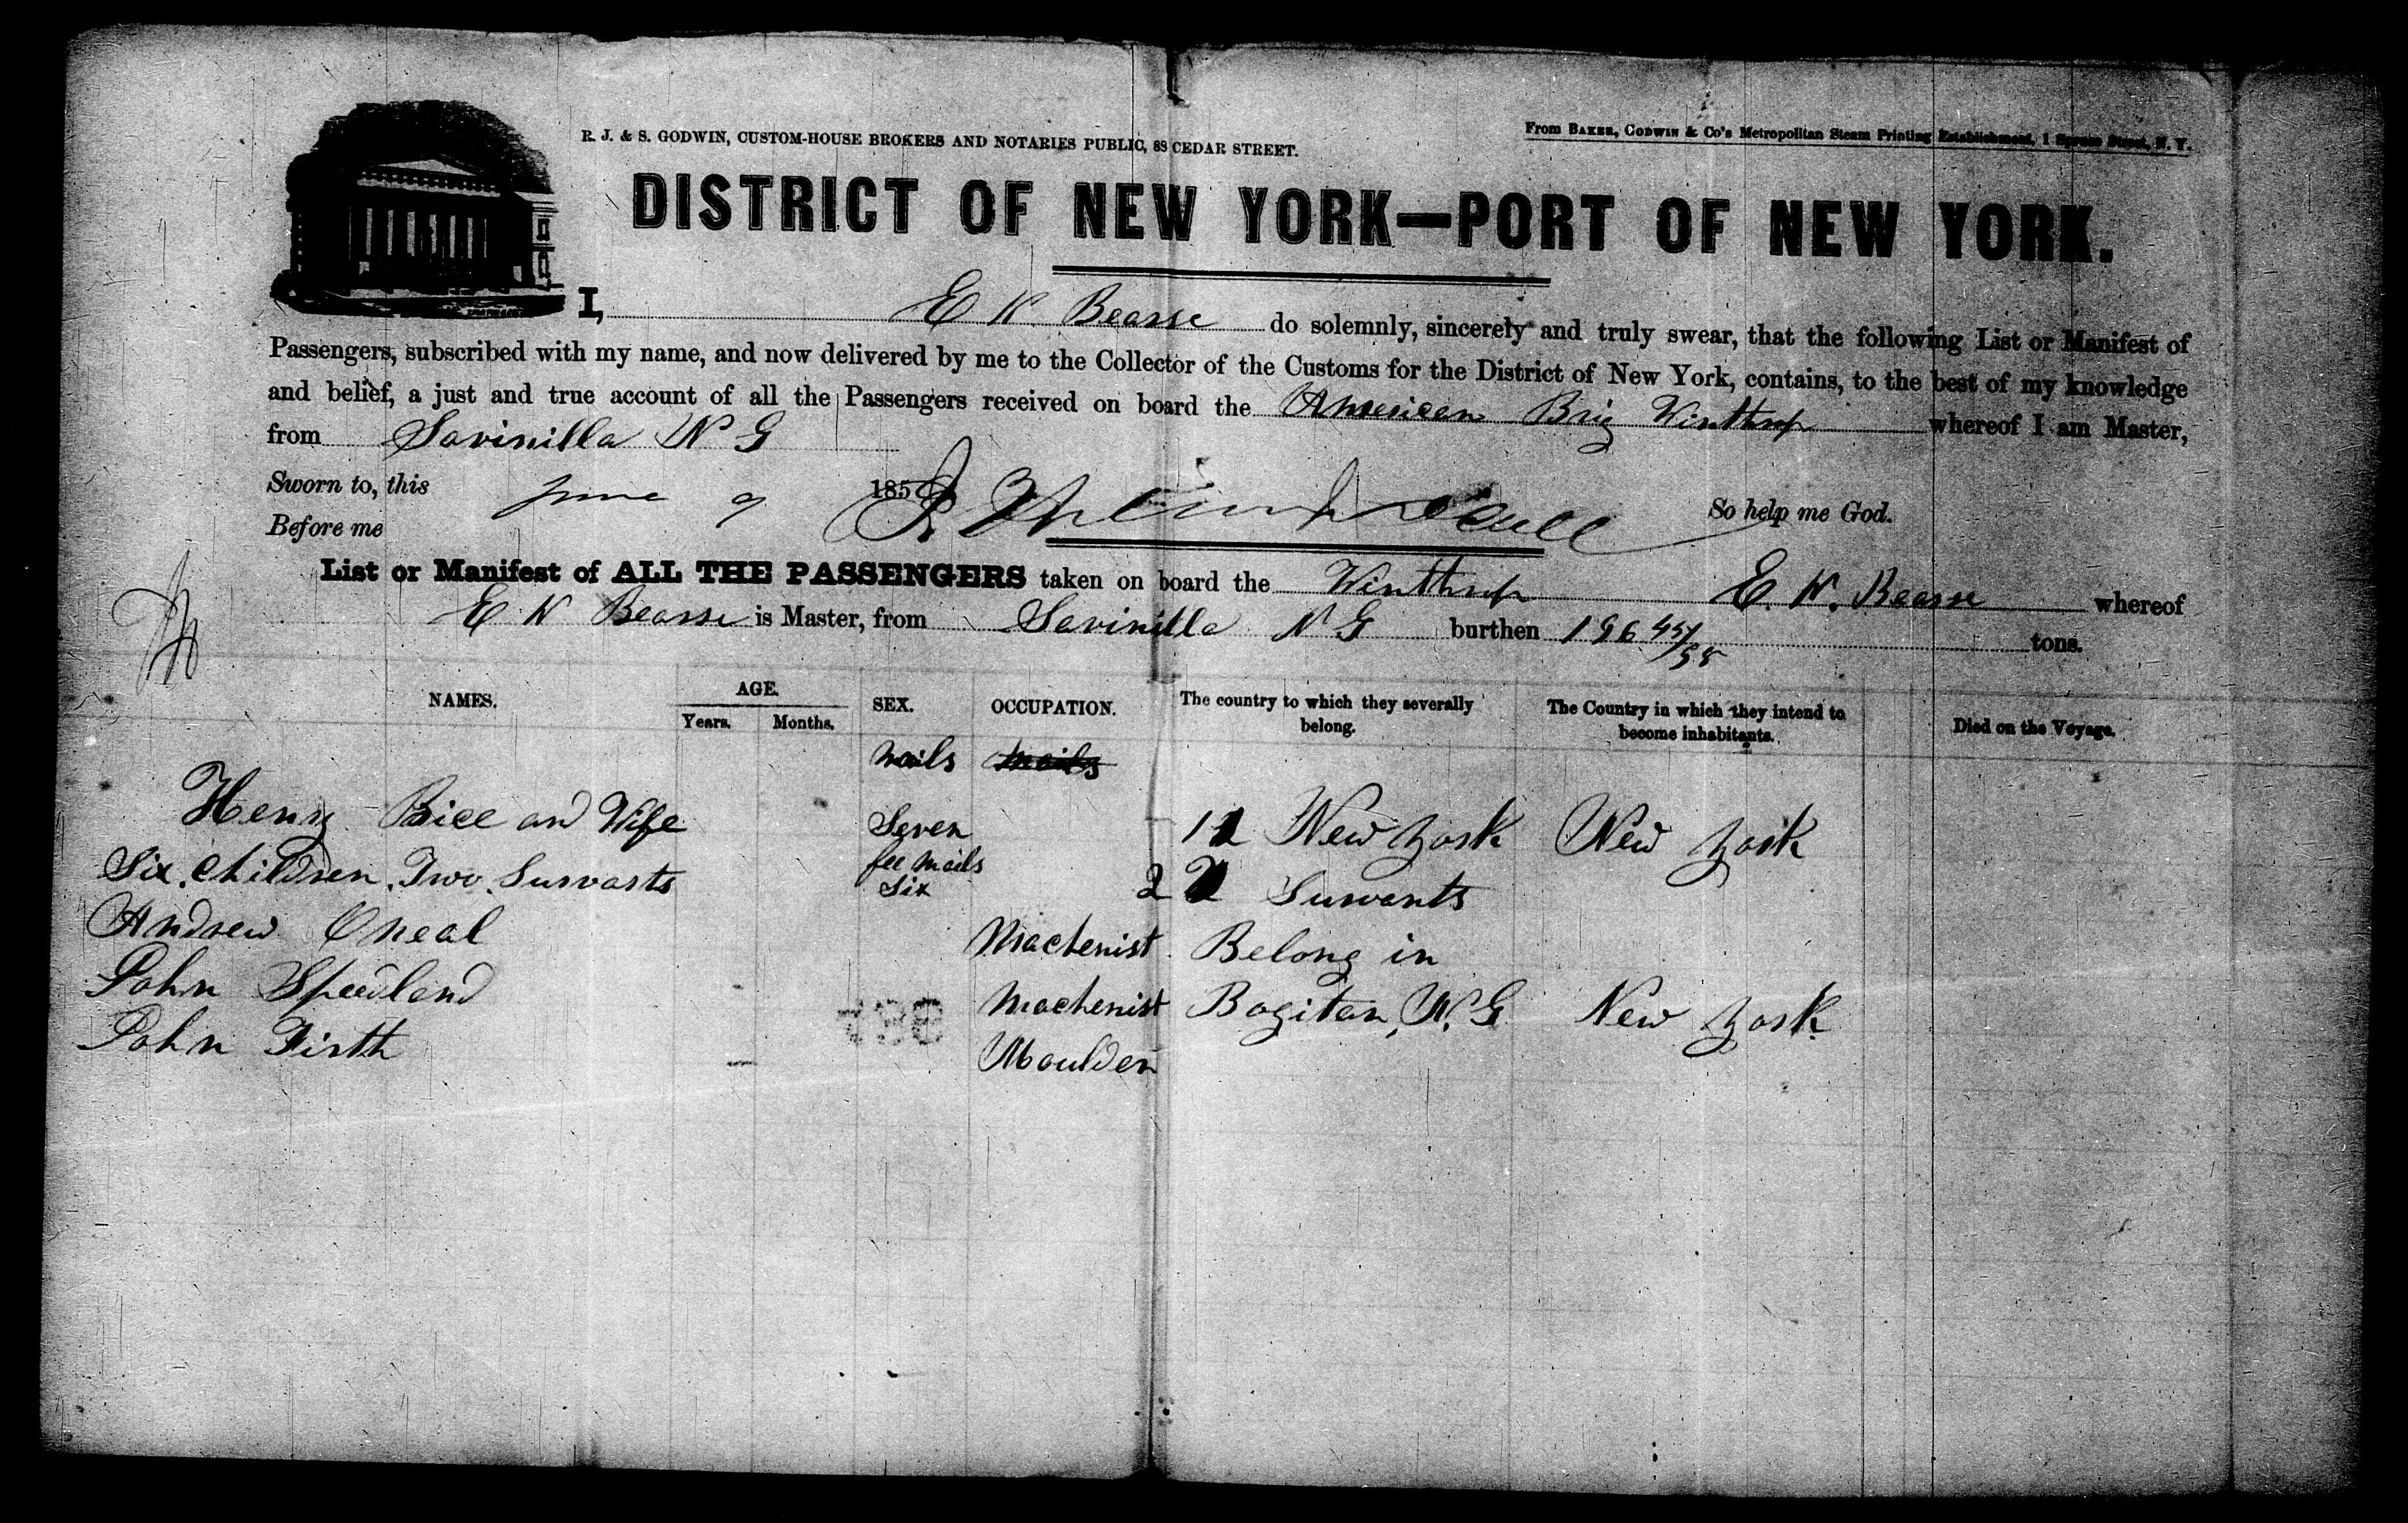 R. J. & S. GODWIN, CUSTOM-HOUSE BROKERS AND NOTARIES PUBLIC, 88 CEDAR STREET.
From BAKER, GODWIN & Co's Metropolitan Steam Printing Establishment, 1 Spruce Street, N. Y.
DISTRICT OF NEW YORK—PORT OF NEW YORK.
I, E N Bearse do solemnly, sincerely and truly swear, that the following List or Manifest of
Passengers, subscribed with my name, and now delivered by me to the Collector of the Customs for the District of New York, contains, to the best of my knowledge
and belief, a just and true account of all the Passengers received on board the American Brig Winthrop whereof I am Master,
from Savinilla N G
Sworn to, this June 9 185
So help me God.
Before me
List or Manifest of ALL THE PASSENGERS taken on board the Winthrop E. N. Bearse whereof
E N Bearse is Master, from Savinilla N G burthen 196 tons.
NAMES. AGE. SEX. OCCUPATION. The country to which they severally belong. The Country in which they intend to become inhabitants. Died on the Voyage.
Years. Months.
mails mails
Henry Bice and Wife Seven 11 New York New York
fee mails
Six Children. Two Survants Six 2 2 Survants
Andrew Oneal Machenist Belong in
John Speedland Machenist Bogitan, N. G New York
John Firth Moulder